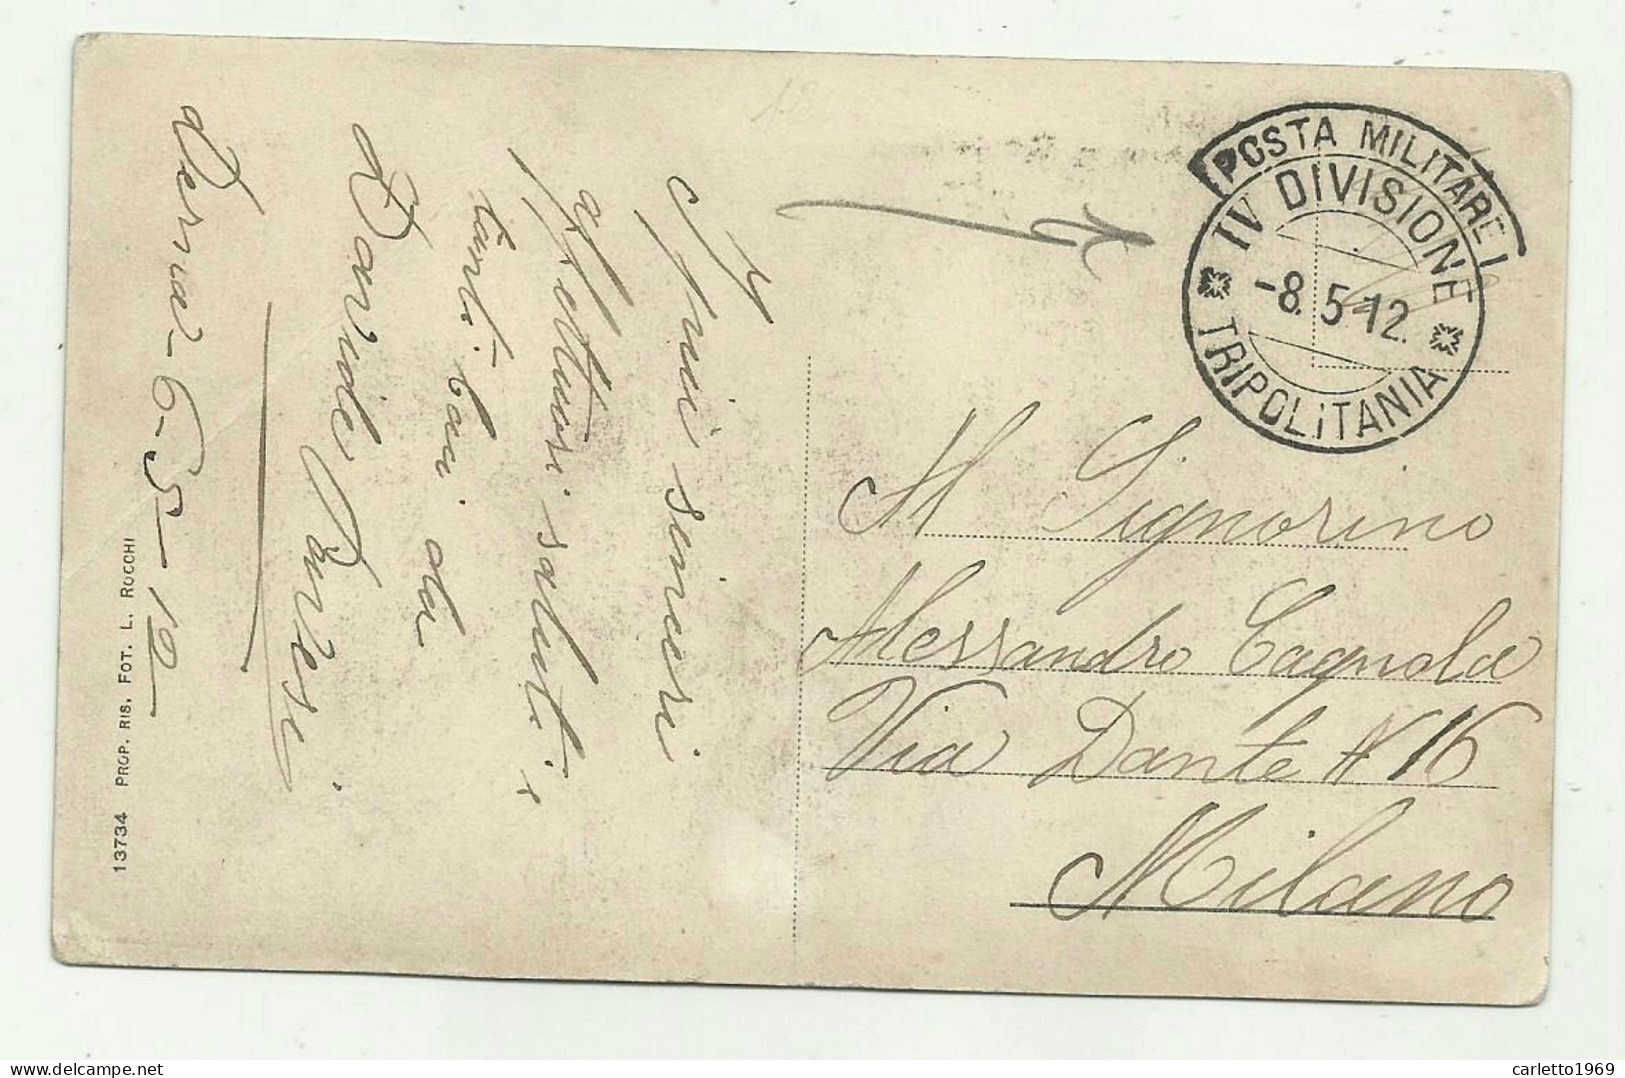 I miei sinceri
affettuosi saluti,
tanti baci da
Davide Varesi
Derna - 6-5-12
13734 PROP. RIS. FOT. L. ROCCHI
POSTA MILITARE
IV DIVISIONE
-8.5.12.
TRIPOLITANIA
Al Signorino
Alessandro Cagnola
Via Dante N 16
Milano
carletto1969